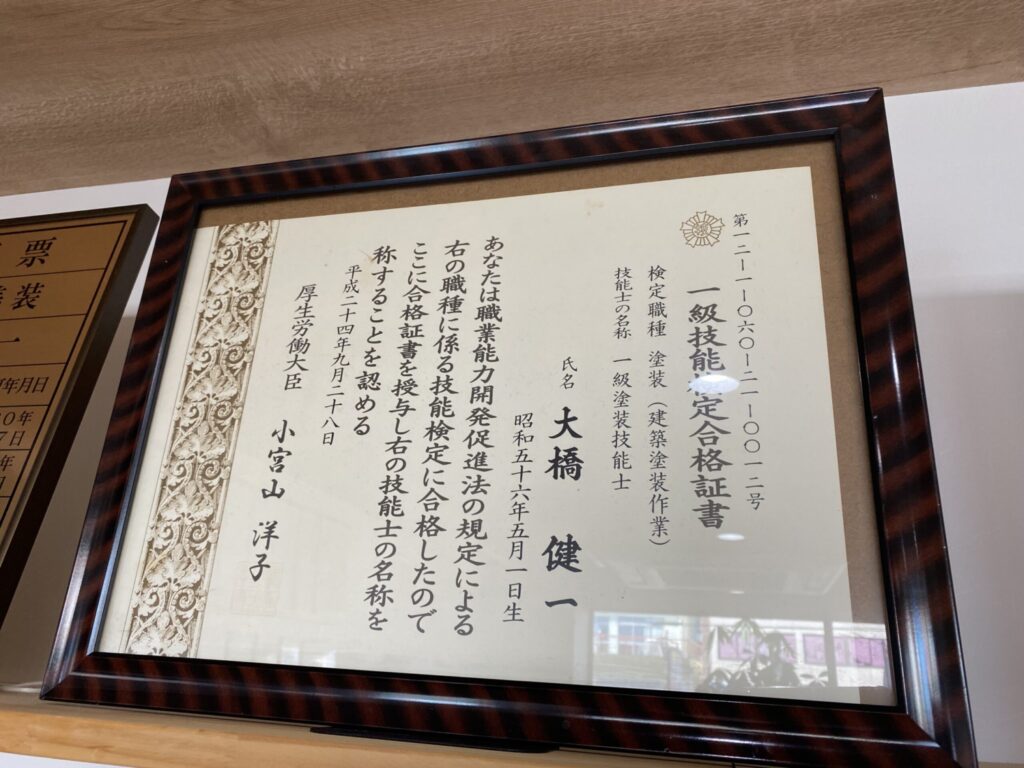 第一二―一―〇六〇―二一―〇〇一二号
一級技能検定合格証書
検定職種 塗装(建築塗装作業)
技能士の名称 一級塗装技能士
氏名 大橋 健一
昭和五十六年五月一日生
あなたは職業能力開発促進法の規定による
右の職種に係る技能検定に合格したので
ここに合格証書を授与し右の技能士の名称を
称することを認める
平成二十四年九月二十八日
厚生労働大臣 小宮山 洋子
票
装
一
年月日
0年
7日
年